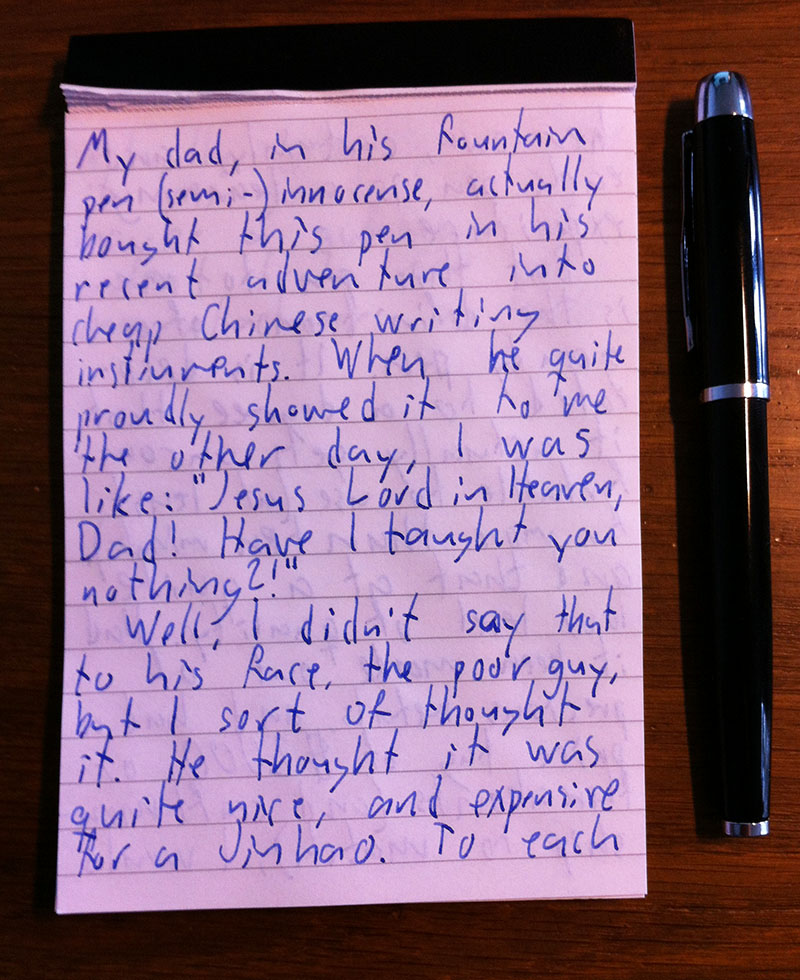 My dad, in his fountain
pen (semi-) innocense, actually
bought this pen in his
recent adventure into
cheap Chinese writing
instruments. When he quite
proudly showed it to me
the other day, I was
like: "Jesus Lord in Heaven,
Dad! Have I taught you
nothing?!"
Well, I didn't say that
to his face, the poor guy,
but I sort of thought
it. He thought it was
quite nice, and expensive
for a Jinhao. To each